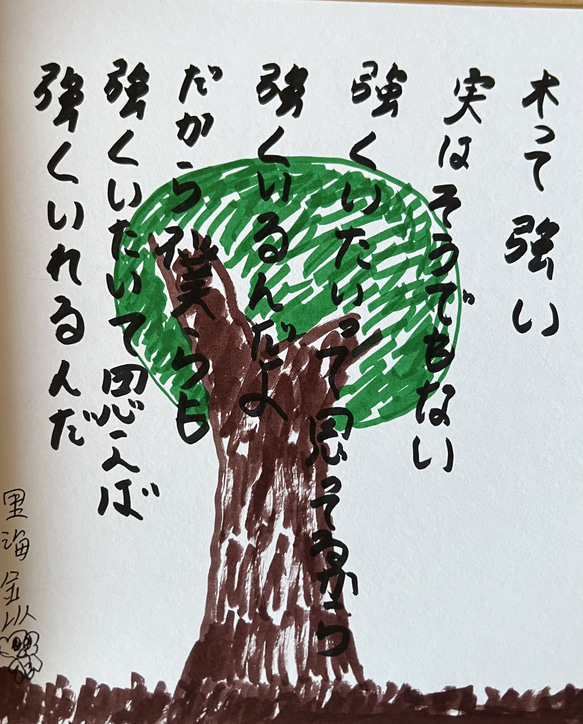 木って強い
実はそうでもない
強くいたいって思ってるから
強くいるんだよ
だから僕らも
強くいたいて思えば
強くいれるんだ
里海